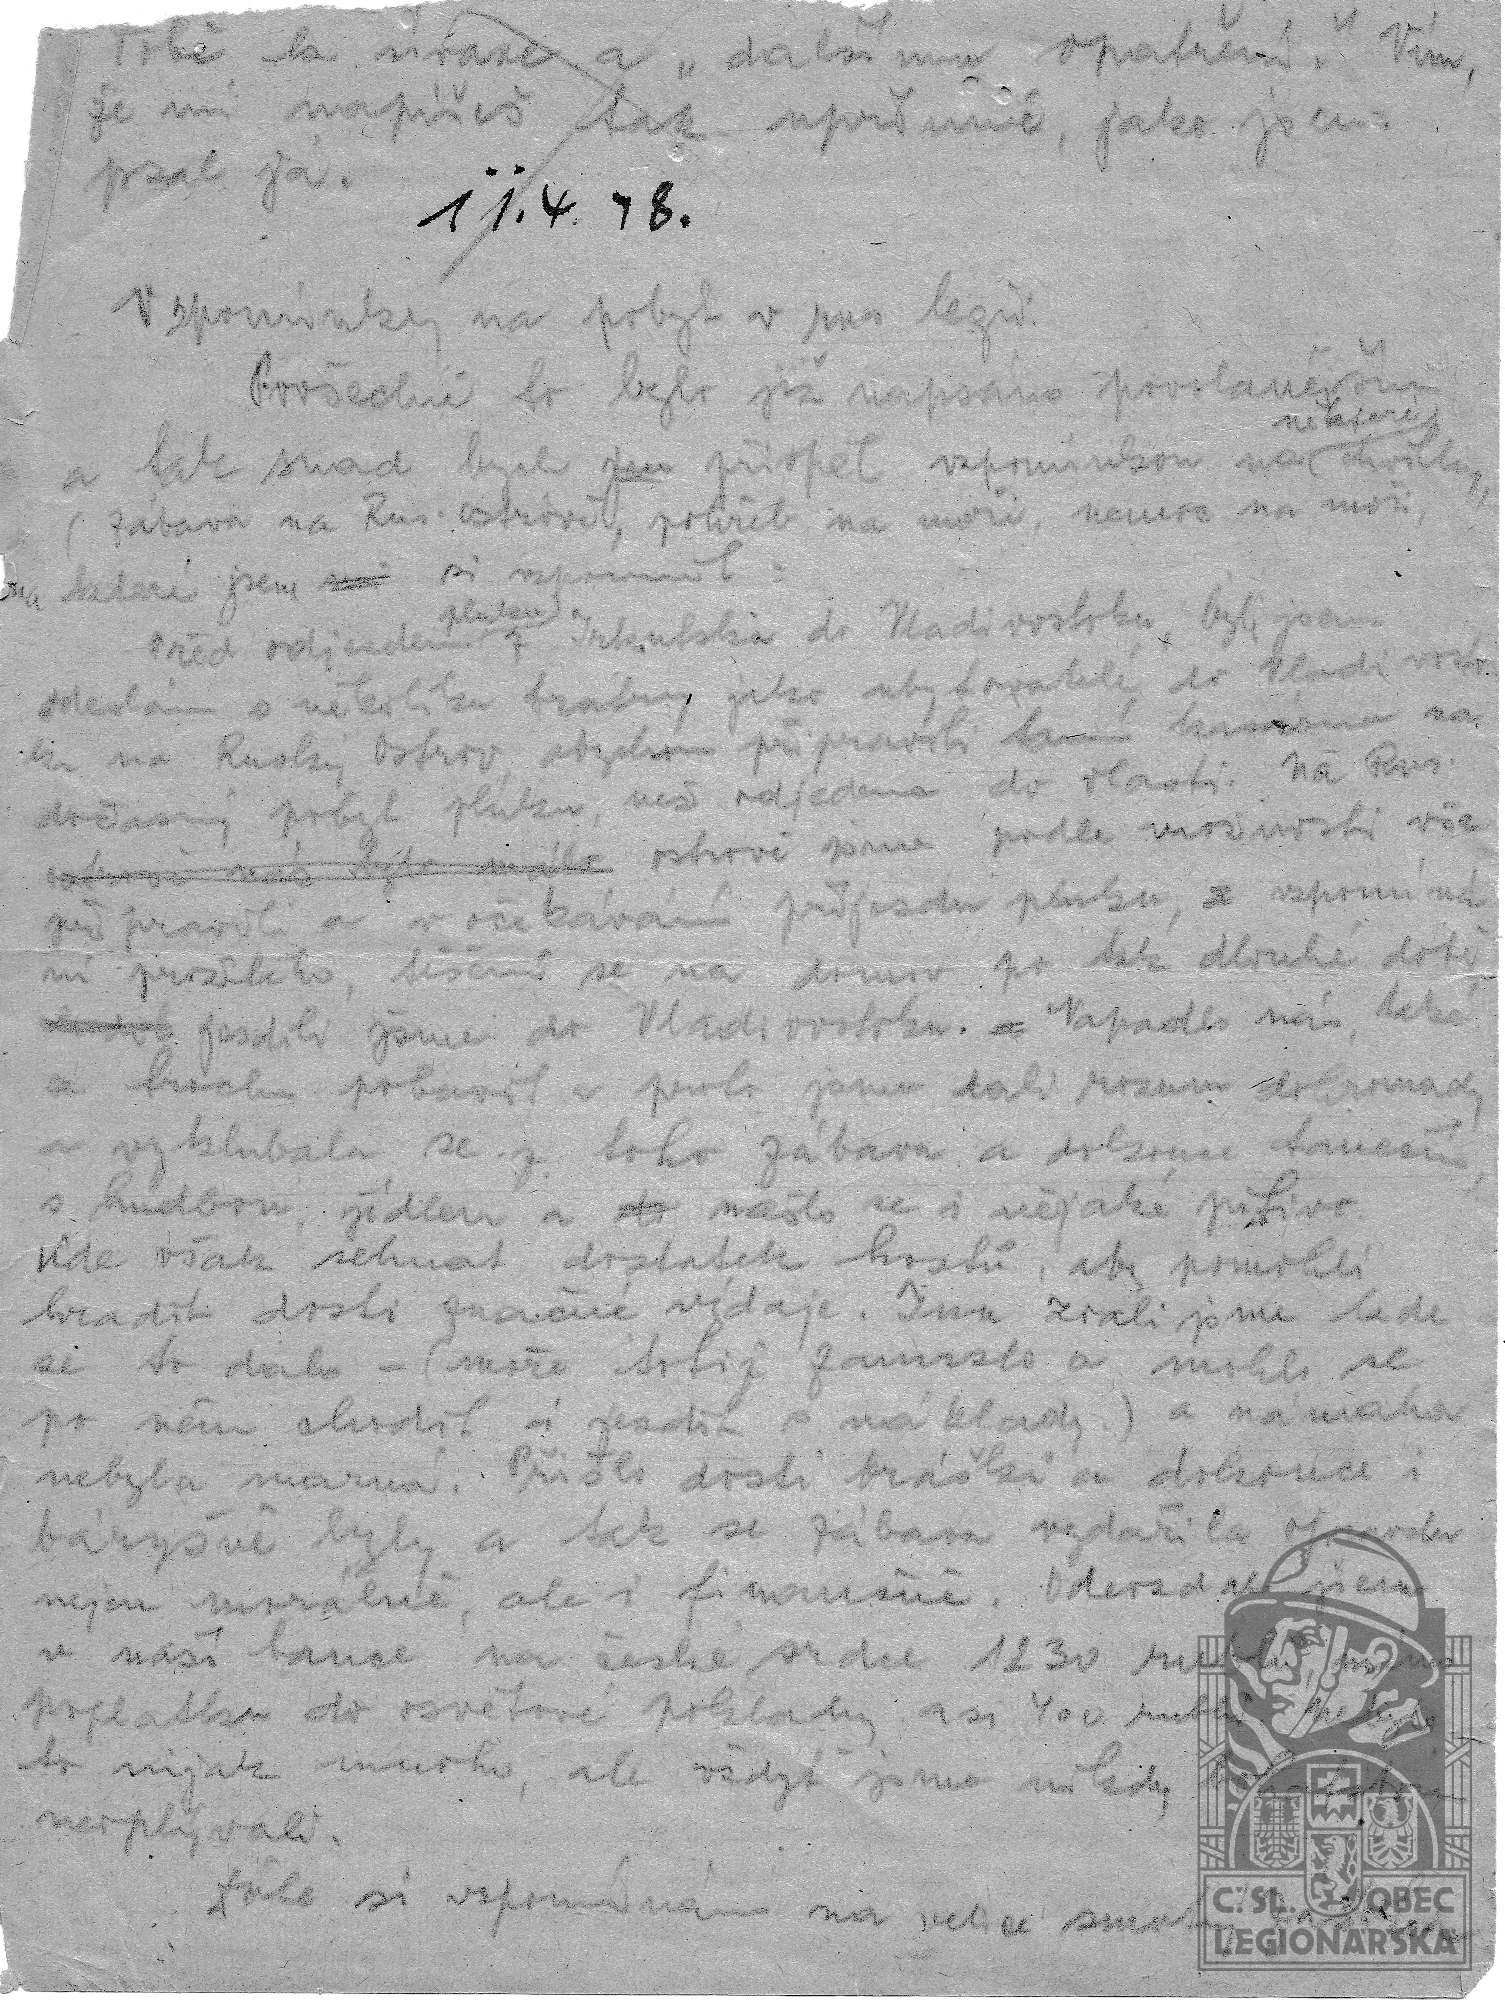 Tobě to úřaze a „dalšímu opatření." Vím,
že mi napíšeš tak upřímně, jako jsem
psal já.
11.4.78.
Vzpomínky na pobyt v rus legii.
Povšechně to bylo již napsáno
některé
a tak snad bych jen přispěl vzpomínkou na chvilky,
(Zábava na Rus. ostrově, pohřeb na moři, nemoc na moři,
na které jsem si vzpomněl:
pluku
Před odjezdem z Irkutska do Vladivostoku, byli jsem
odeslán s několika bratry jako ubytovatelé do Vladivosto
ku na Ruský Ostrov, abychom připravili tam kasárna na
dočasný pobyt pluku, než odjedeme do vlasti. Na Rus.
ostrově nás bylo málo ostrově jsme podle možnosti vše
připravili a v očekávání příjezdu pluku, z vzpomíná
ní prožitého, těšení se na domov po tak dlouhé době,
jezdili jsme do Vladivostoku. Napadlo nás, také
se trochu pobavit a proto jsme dali rozum dohromady
a vyklubala se z toho zábava a dokonce taneční,
s hudbou, jídlem a našlo se i nějaké pitivo.
Kde však sehnat dostatek hostů, aby pomohli
hradit dosti značné výdaje. Inu zvali jsme kde
se to dalo – (moře totiž zamrzlo a mohlo se
po něm chodit i jezdit s náklady.) a námaha
nebyla marná. Přišlo dosti brášků a dokonce i
báryšně byly a tak se zábava vydařila opravdu
nejen morálně, ale i finančně. Odevzdal jsem
v naší bance na české srdce 1230 rublů mimo
poplatku do osvětové pokladny asi 400 rublů. Nebylo
to nijak mnoho, ale vždyť jsme nikdy bohatstvím
neoplývali.
Dále si vzpomínám na velice
Č. SL. OBEC
LEGIONÁŘSKÁ